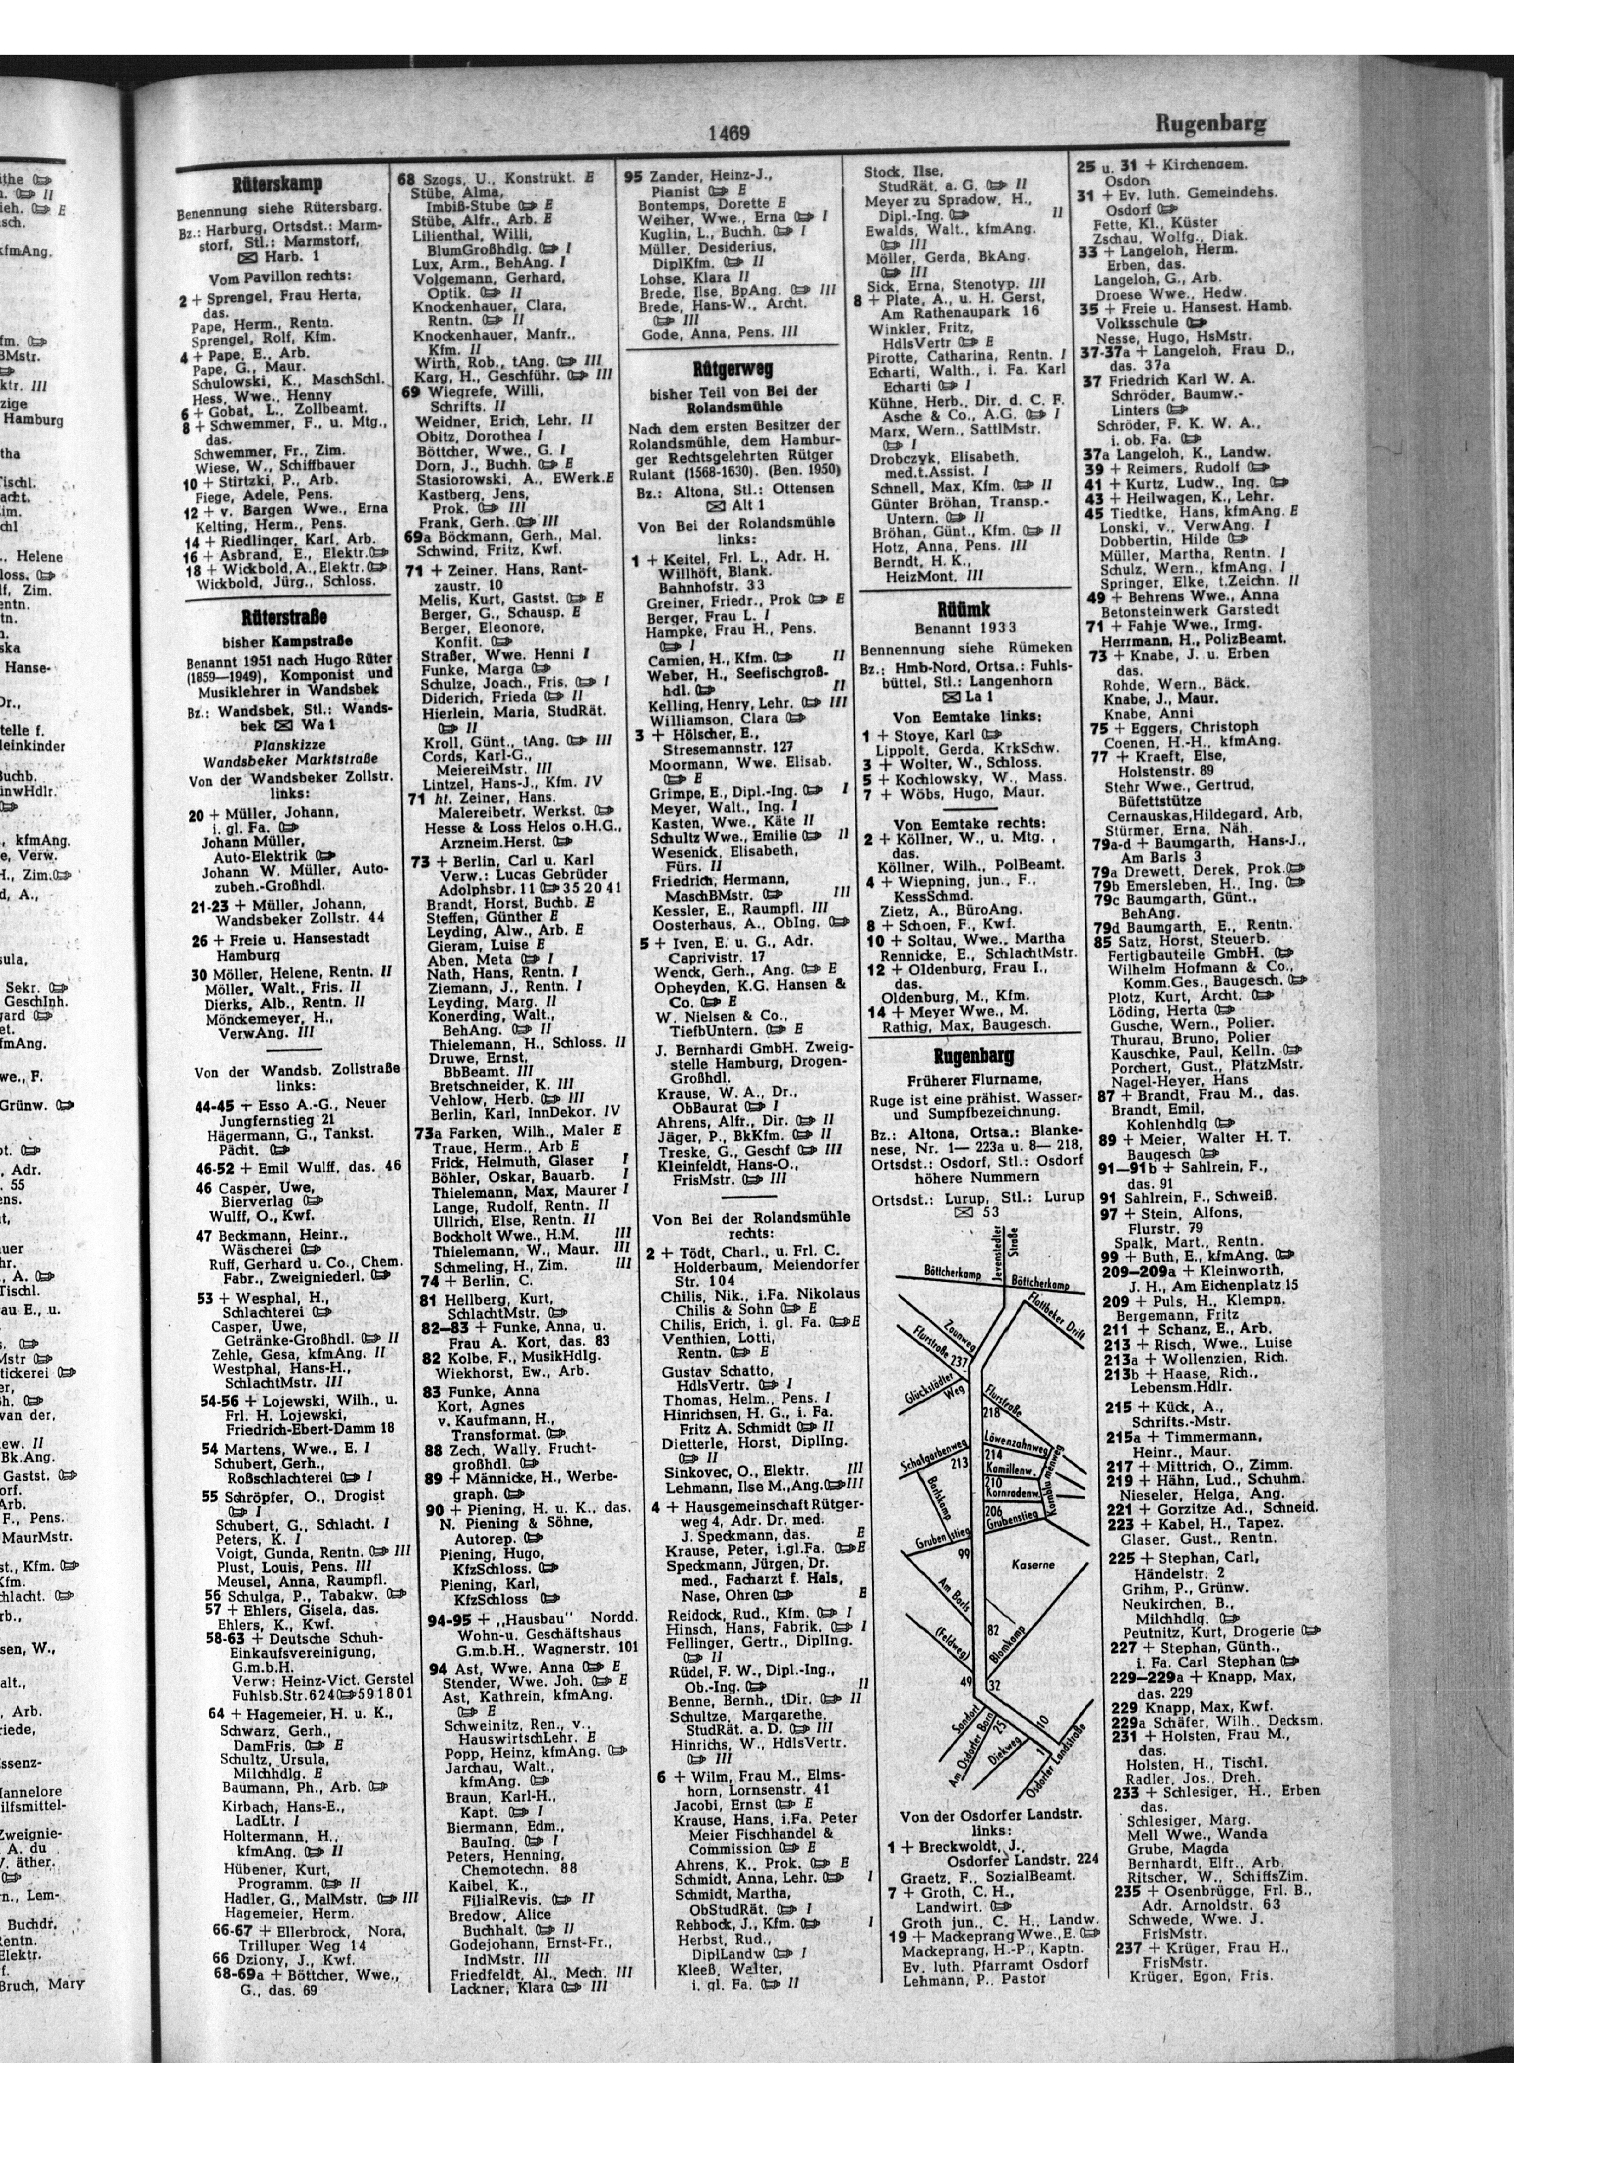 1469
Rugenbarg
Rüterskamp
Benennung siehe Rütersbarg.
Bz.: Harburg, Ortsdst.: Marm-
storf, Stl.: Marmstorf,
Harb. 1
Vom Pavillon rechts:
2 + Sprengel, Frau Herta,
das.
Pape, Herm., Rentn.
Sprengel, Rolf, Kfm.
4 + Pape, E., Arb.
Pape, G., Maur.
Schulowski, K., MaschSchl.
Hess, Wwe., Henny
6 + Gobat, L., Zollbeamt.
8 + Schwemmer, F., u. Mtg.,
das.
Schwemmer, Fr., Zim.
Wiese, W., Schiffbauer
10 + Stirtzki, P., Arb.
Fiege, Adele, Pens.
12 + v. Bargen Wwe., Erna
Kelting, Herm., Pens.
14 + Riedlinger, Karl, Arb.
16 + Asbrand, E., Elektr.
18 + Wickbold, A., Elektr.
Wickbold, Jürg., Schloss.
Rüterstraße
bisher Kampstraße
Benannt 1951 nach Hugo Rüter
(1859—1949), Komponist und
Musiklehrer in Wandsbek
Bz.: Wandsbek, Stl.: Wands-
bek Wa 1
Planskizze
Wandsbeker Marktstraße
Von der Wandsbeker Zollstr.
links:
20 + Müller, Johann,
i. gl. Fa.
Johann Müller,
Auto-Elektrik
Johann W. Müller, Auto-
zubeh.-Großhdl.
21-23 + Müller, Johann,
Wandsbeker Zollstr. 44
26 + Freie u. Hansestadt
Hamburg
30 Möller, Helene, Rentn. II
Möller, Walt., Fris. II
Dierks, Alb., Rentn. II
Mönckemeyer, H.,
VerwAng. III
Von der Wandsb. Zollstraße
links:
44-45 + Esso A.-G., Neuer
Jungfernstieg 21
Hägermann, G., Tankst.
Pächt.
46-52 + Emil Wulff, das. 46
46 Casper, Uwe,
Bierverlag
Wulff, O., Kwf.
47 Beckmann, Heinr.,
Wäscherei
Ruff, Gerhard u. Co., Chem.
Fabr., Zweigniederl.
53 + Wesphal, H.,
Schlachterei
Casper, Uwe,
Getränke-Großhdl. II
Zehle, Gesa, kfmAng. II
Westphal, Hans-H.,
SchlachtMstr. III
54-56 + Lojewski, Wilh., u.
Frl. H. Lojewski,
Friedrich-Ebert-Damm 18
54 Martens, Wwe., E. I
Schubert, Gerh.,
Roßschlachterei I
55 Schröpfer, O., Drogist
I
Schubert, G., Schlacht. I
Peters, K. I
Voigt, Gunda, Rentn. III
Plust, Louis, Pens. III
Meusel, Anna, Raumpfl.
56 Schulga, P., Tabakw.
57 + Ehlers, Gisela, das.
Ehlers, K., Kwf.
58-63 + Deutsche Schuh-
Einkaufsvereinigung,
G.m.b.H.
Verw: Heinz-Vict. Gerstel
Fuhlsb.Str.624 591801
64 + Hagemeier, H. u. K.,
Schwarz, Gerh.,
DamFris. E
Schultz, Ursula,
Milchhdlg. E
Baumann, Ph., Arb.
Kirbach, Hans-E.,
LadLtr. I
Holtermann, H.,
kfmAng. II
Hübener, Kurt,
Programm. II
Hadler, G., MalMstr. III
Hagemeier, Herm.
66-67 + Ellerbrock, Nora,
Trilluper Weg 14
66 Dziony, J., Kwf.
68-69a + Böttcher, Wwe.,
G., das. 69
68 Szogs, U., Konstrukt. E
Stübe, Alma,
Imbiß-Stube E
Stübe, Alfr., Arb. E
Lilienthal, Willi,
BlumGroßhdlg. I
Lux, Arm., BehAng. I
Volgemann, Gerhard,
Optik. II
Knockenhauer, Clara,
Rentn. II
Knockenhauer, Manfr.,
Kfm. II
Wirth, Rob., tAng. III
Karg, H., Geschführ. III
69 Wiegrefe, Willi,
Schrifts. II
Weidner, Erich, Lehr. II
Obitz, Dorothea I
Böttcher, Wwe., G. I
Dorn, J., Buchh. E
Stasiorowski, A., EWerk.E
Kastberg, Jens,
Prok. III
Frank, Gerh. III
69a Böckmann, Gerh., Mal.
Schwind, Fritz, Kwf.
71 + Zeiner, Hans, Rant-
zaustr. 10
Melis, Kurt, Gastst. E
Berger, G., Schausp. E
Berger, Eleonore,
Konfit.
Straßer, Wwe. Henni I
Funke, Marga
Schulze, Joach., Fris. I
Diderich, Frieda II
Hierlein, Maria, StudRät.
II
Kroll, Günt., tAng. III
Cords, Karl-G.,
MeiereiMstr. III
Lintzel, Hans-J., Kfm. IV
71 ht. Zeiner, Hans.
Malereibetr. Werkst.
Hesse & Loss Helos o.H.G.,
Arzneim.Herst.
73 + Berlin, Carl u. Karl
Verw.: Lucas Gebrüder
Adolphsbr. 11 35 20 41
Brandt, Horst, Buchb. E
Steffen, Günther E
Leyding, Alw., Arb. E
Gieram, Luise E
Aben, Meta I
Nath, Hans, Rentn. I
Ziemann, J., Rentn. I
Leyding, Marg. II
Konerding, Walt.,
BehAng. II
Thielemann, H., Schloss. II
Druwe, Ernst,
BbBeamt. III
Bretschneider, K. III
Vehlow, Herb. III
Berlin, Karl, InnDekor. IV
73a Farken, Wilh., Maler E
Traue, Herm., Arb E
Frick, Helmuth, Glaser I
Böhler, Oskar, Bauarb. I
Thielemann, Max, Maurer I
Lange, Rudolf, Rentn. II
Ullrich, Else, Rentn. II
Bockholt Wwe., H.M. III
Thielemann, W., Maur. III
Schmeling, H., Zim. III
74 + Berlin, C.
81 Hellberg, Kurt,
SchlachtMstr.
82—83 + Funke, Anna, u.
Frau A. Kort, das. 83
82 Kolbe, F., MusikHdlg.
Wiekhorst, Ew., Arb.
83 Funke, Anna
Kort, Agnes
v. Kaufmann, H.,
Transformat.
88 Zech, Wally, Frucht-
großhdl.
89 + Männicke, H., Werbe-
graph.
90 + Piening, H. u. K., das.
N. Piening & Söhne,
Autorep.
Piening, Hugo,
KfzSchloss.
Piening, Karl,
KfzSchloss
94-95 + „Hausbau" Nordd.
Wohn-u. Geschäftshaus
G.m.b.H., Wagnerstr. 101
94 Ast, Wwe. Anna E
Stender, Wwe. Joh. E
Ast, Kathrein, kfmAng.
E
Schweinitz, Ren., v.,
HauswirtschLehr. E
Popp, Heinz, kfmAng.
Jarchau, Walt.,
kfmAng.
Braun, Karl-H.,
Kapt. I
Biermann, Edm.,
BauIng. I
Peters, Henning,
Chemotechn. 88
Kaibel, K.,
FilialRevis. II
Bredow, Alice
Buchhalt. II
Godejohann, Ernst-Fr.,
IndMstr. III
Friedfeldt, Al., Mech. III
Lackner, Klara III
95 Zander, Heinz-J.,
Pianist E
Bontemps, Dorette E
Weiher, Wwe., Erna I
Kuglin, L., Buchh. I
Müller, Desiderius,
DiplKfm. II
Lohse, Klara II
Brede, Ilse, BpAng. III
Brede, Hans-W., Archt.
III
Gode, Anna, Pens. III
Rütgerweg
bisher Teil von Bei der
Rolandsmühle
Nach dem ersten Besitzer der
Rolandsmühle, dem Hambur-
ger Rechtsgelehrten Rütger
Rulant (1568-1630). (Ben. 1950)
Bz.: Altona, Stl.: Ottensen
Alt 1
Von Bei der Rolandsmühle
links:
1 + Keitel, Frl. L., Adr. H.
Willhöft, Blank.
Bahnhofstr. 33
Greiner, Friedr., Prok E
Berger, Frau L. I
Hampke, Frau H., Pens.
I
Camien, H., Kfm. II
Weber, H., Seefischgroß-
hdl. II
Kelling, Henry, Lehr. III
Williamson, Clara
3 + Hölscher, E.,
Stresemannstr. 127
Moormann, Wwe. Elisab.
E
Grimpe, E., Dipl.-Ing. I
Meyer, Walt., Ing. I
Kasten, Wwe., Käte II
Schultz Wwe., Emilie II
Wesenick, Elisabeth,
Fürs. II
Friedrich, Hermann,
MaschBMstr. III
Kessler, E., Raumpfl. III
Oosterhaus, A., ObIng.
5 + Iven, E. u. G., Adr.
Caprivistr. 17
Wenck, Gerh., Ang. E
Opheyden, K.G. Hansen &
Co. E
W. Nielsen & Co.,
TiefbUntern. E
J. Bernhardi GmbH. Zweig-
stelle Hamburg, Drogen-
Großhdl.
Krause, W. A., Dr.,
ObBaurat I
Ahrens, Alfr., Dir. II
Jäger, P., BkKfm. II
Treske, G., Geschf III
Kleinfeldt, Hans-O.,
FrisMstr. III
Von Bei der Rolandsmühle
rechts:
2 + Tödt, Charl., u. Frl. C.
Holderbaum, Meiendorfer
Str. 104
Chilis, Nik., i.Fa. Nikolaus
Chilis & Sohn E
Chilis, Erich, i. gl. Fa. E
Venthien, Lotti,
Rentn. E
Gustav Schatto,
HdlsVertr. I
Thomas, Helm., Pens. I
Hinrichsen, H. G., i. Fa.
Fritz A. Schmidt II
Dietterle, Horst, DiplIng.
II
Sinkovec, O., Elektr. III
Lehmann, Ilse M., Ang. III
4 + Hausgemeinschaft Rütger-
weg 4, Adr. Dr. med.
J. Speckmann, das. E
Krause, Peter, i.gl.Fa. E
Speckmann, Jürgen, Dr.
med., Facharzt f. Hals,
Nase, Ohren E
Reidock, Rud., Kfm. I
Hinsch, Hans, Fabrik. I
Fellinger, Gertr., DiplIng.
II
Rüdel, F. W., Dipl.-Ing.,
Ob.-Ing. II
Benne, Bernh., tDir. II
Schultze, Margarethe,
StudRät. a. D. III
Hinrichs, W., HdlsVertr.
III
6 + Wilm, Frau M., Elms-
horn, Lornsenstr. 41
Jacobi, Ernst E
Krause, Hans, i.Fa. Peter
Meier Fischhandel &
Commission E
Ahrens, K., Prok. E
Schmidt, Anna, Lehr. I
Schmidt, Martha,
ObStudRät. I
Rehbock, J., Kfm. I
Herbst, Rud.,
DiplLandw I
Kleeß, Walter,
i. gl. Fa. II
Stock, Ilse,
StudRät. a. G. II
Meyer zu Spradow, H.,
Dipl.-Ing. II
Ewalds, Walt., kfmAng.
III
Möller, Gerda, BkAng.
III
Sick, Erna, Stenotyp. III
8 + Plate, A., u. H. Gerst,
Am Rathenaupark 16
Winkler, Fritz,
HdlsVertr E
Pirotte, Catharina, Rentn. I
Echarti, Walth., i. Fa. Karl
Echarti I
Kühne, Herb., Dir. d. C. F.
Asche & Co., A.G. I
Marx, Wern., SattlMstr.
I
Drobczyk, Elisabeth,
med.t.Assist. I
Schnell, Max, Kfm. II
Günter Bröhan, Transp.-
Untern. II
Bröhan, Günt., Kfm. II
Hotz, Anna, Pens. III
Berndt, H. K.,
HeizMont. III
Rüümk
Benannt 1933
Bennennung siehe Rümeken
Bz.: Hmb-Nord, Ortsa.: Fuhls-
büttel, Stl.: Langenhorn
La 1
Von Eemtake links:
1 + Stoye, Karl
Lippolt, Gerda, KrkSchw.
3 + Wolter, W., Schloss.
5 + Kochlowsky, W., Mass.
7 + Wöbs, Hugo, Maur.
Von Eemtake rechts:
2 + Köllner, W., u. Mtg.,
das.
Köllner, Wilh., PolBeamt.
4 + Wiepning, jun., F.,
KessSchmd.
Zietz, A., BüroAng.
8 + Schoen, F., Kwf.
10 + Soltau, Wwe., Martha
Rennicke, E., SchlachtMstr.
12 + Oldenburg, Frau I.,
das.
Oldenburg, M., Kfm.
14 + Meyer Wwe., M.
Rathig, Max, Baugesch.
Rugenbarg
Früherer Flurname,
Ruge ist eine prähist. Wasser-
und Sumpfbezeichnung.
Bz.: Altona, Ortsa.: Blanke-
nese, Nr. 1— 223a u. 8— 218,
Ortsdst.: Osdorf, Stl.: Osdorf
höhere Nummern
Ortsdst.: Lurup, Stl.: Lurup
53
Jevenstedter
Straße
Böttcherkamp
Böttcherkamp
Flottbeker Drift
Zaunweg
Flurstraße 237
Glückstädter
Weg
Flurstraße
218
Löwenzahnweg
Schafgarbenweg
213
214
Kamillenw.
210
Kornradenw.
Kornblumenweg
Barlskamp
206
Grubenstieg
Grubenstieg
99
Kaserne
Am Barls
82
Blomkamp
(Feldweg)
49
32
Sandort
Am Osdorfer Born
25
10
Diekweg
1
Osdorfer Landstraße
Von der Osdorfer Landstr.
links:
1 + Breckwoldt, J.,
Osdorfer Landstr. 224
Graetz, F., SozialBeamt.
7 + Groth, C. H.,
Landwirt.
Groth jun., C. H., Landw.
19 + Mackeprang Wwe., E.
Mackeprang, H.-P., Kaptn.
Ev. luth. Pfarramt Osdorf
Lehmann, P., Pastor
25 u. 31 + Kirchengem.
Osdorf
31 + Ev. luth. Gemeindehs.
Osdorf
Fette, Kl., Küster
Zschau, Wolfg., Diak.
33 + Langeloh, Herm.
Erben, das.
Langeloh, G., Arb.
Droese Wwe., Hedw.
35 + Freie u. Hansest. Hamb.
Volksschule
Nesse, Hugo, HsMstr.
37-37a + Langeloh, Frau D.,
das. 37a
37 Friedrich Karl W. A.
Schröder, Baumw.-
Linters
Schröder, F. K. W. A.,
i. ob. Fa.
37a Langeloh, K., Landw.
39 + Reimers, Rudolf
41 + Kurtz, Ludw., Ing.
43 + Heilwagen, K., Lehr.
45 Tiedtke, Hans, kfmAng. E
Lonski, v., VerwAng. I
Dobbertin, Hilde
Müller, Martha, Rentn. I
Schulz, Wern., kfmAng. I
Springer, Elke, t.Zeichn. II
49 + Behrens Wwe., Anna
Betonsteinwerk Garstedt
71 + Fahje Wwe., Irmg.
Herrmann, H., PolizBeamt.
73 + Knabe, J. u. Erben
das.
Rohde, Wern., Bäck.
Knabe, J., Maur.
Knabe, Anni
75 + Eggers, Christoph
Coenen, H.-H., kfmAng.
77 + Kraeft, Else,
Holstenstr. 89
Stehr Wwe., Gertrud,
Büfettstütze
Cernauskas, Hildegard, Arb,
Stürmer, Erna, Näh.
79a-d + Baumgarth, Hans-J.,
Am Barls 3
79a Drewett, Derek, Prok.
79b Emersleben, H., Ing.
79c Baumgarth, Günt.,
BehAng.
79d Baumgarth, E., Rentn.
85 Satz, Horst, Steuerb.
Fertigbauteile GmbH.
Wilhelm Hofmann & Co.,
Komm.Ges., Baugesch.
Plotz, Kurt, Archt.
Löding, Herta
Gusche, Wern., Polier.
Thurau, Bruno, Polier
Kauschke, Paul, Kelln.
Porchert, Gust., PlatzMstr.
Nagel-Heyer, Hans
87 + Brandt, Frau M., das.
Brandt, Emil,
Kohlenhdlg
89 + Meier, Walter H. T.
Baugesch
91—91b + Sahlrein, F.,
das. 91
91 Sahlrein, F., Schweiß.
97 + Stein, Alfons,
Flurstr. 79
Spalk, Mart., Rentn.
99 + Buth, E., kfmAng.
209—209a + Kleinworth,
J. H., Am Eichenplatz 15
209 + Puls, H., Klempn.
Bergemann, Fritz
211 + Schanz, E., Arb.
213 + Risch, Wwe., Luise
213a + Wollenzien, Rich.
213b + Haase, Rich.,
Lebensm.Hdlr.
215 + Kück, A.,
Schrifts.-Mstr.
215a + Timmermann,
Heinr., Maur.
217 + Mittrich, O., Zimm.
219 + Hähn, Lud., Schuhm.
Nieseler, Helga, Ang.
221 + Gorzitze Ad., Schneid.
223 + Kabel, H., Tapez.
Glaser, Gust., Rentn.
225 + Stephan, Carl,
Händelstr. 2
Grihm, P., Grünw.
Neukirchen, B.,
Milchhdlg.
Peutnitz, Kurt, Drogerie
227 + Stephan, Günth.,
i. Fa. Carl Stephan
229—229a + Knapp, Max,
das. 229
229 Knapp, Max, Kwf.
229a Schäfer, Wilh., Decksm.
231 + Holsten, Frau M.,
das.
Holsten, H., Tischl.
Radler, Jos., Dreh.
233 + Schlesiger, H., Erben
das.
Schlesiger, Marg.
Mell Wwe., Wanda
Grube, Magda
Bernhardt, Elfr., Arb.
Ritscher, W., SchiffsZim.
235 + Osenbrügge, Frl. B.,
Adr. Arnoldstr. 63
Schwede, Wwe. J.
FrisMstr.
237 + Krüger, Frau H.,
FrisMstr.
Krüger, Egon, Fris.